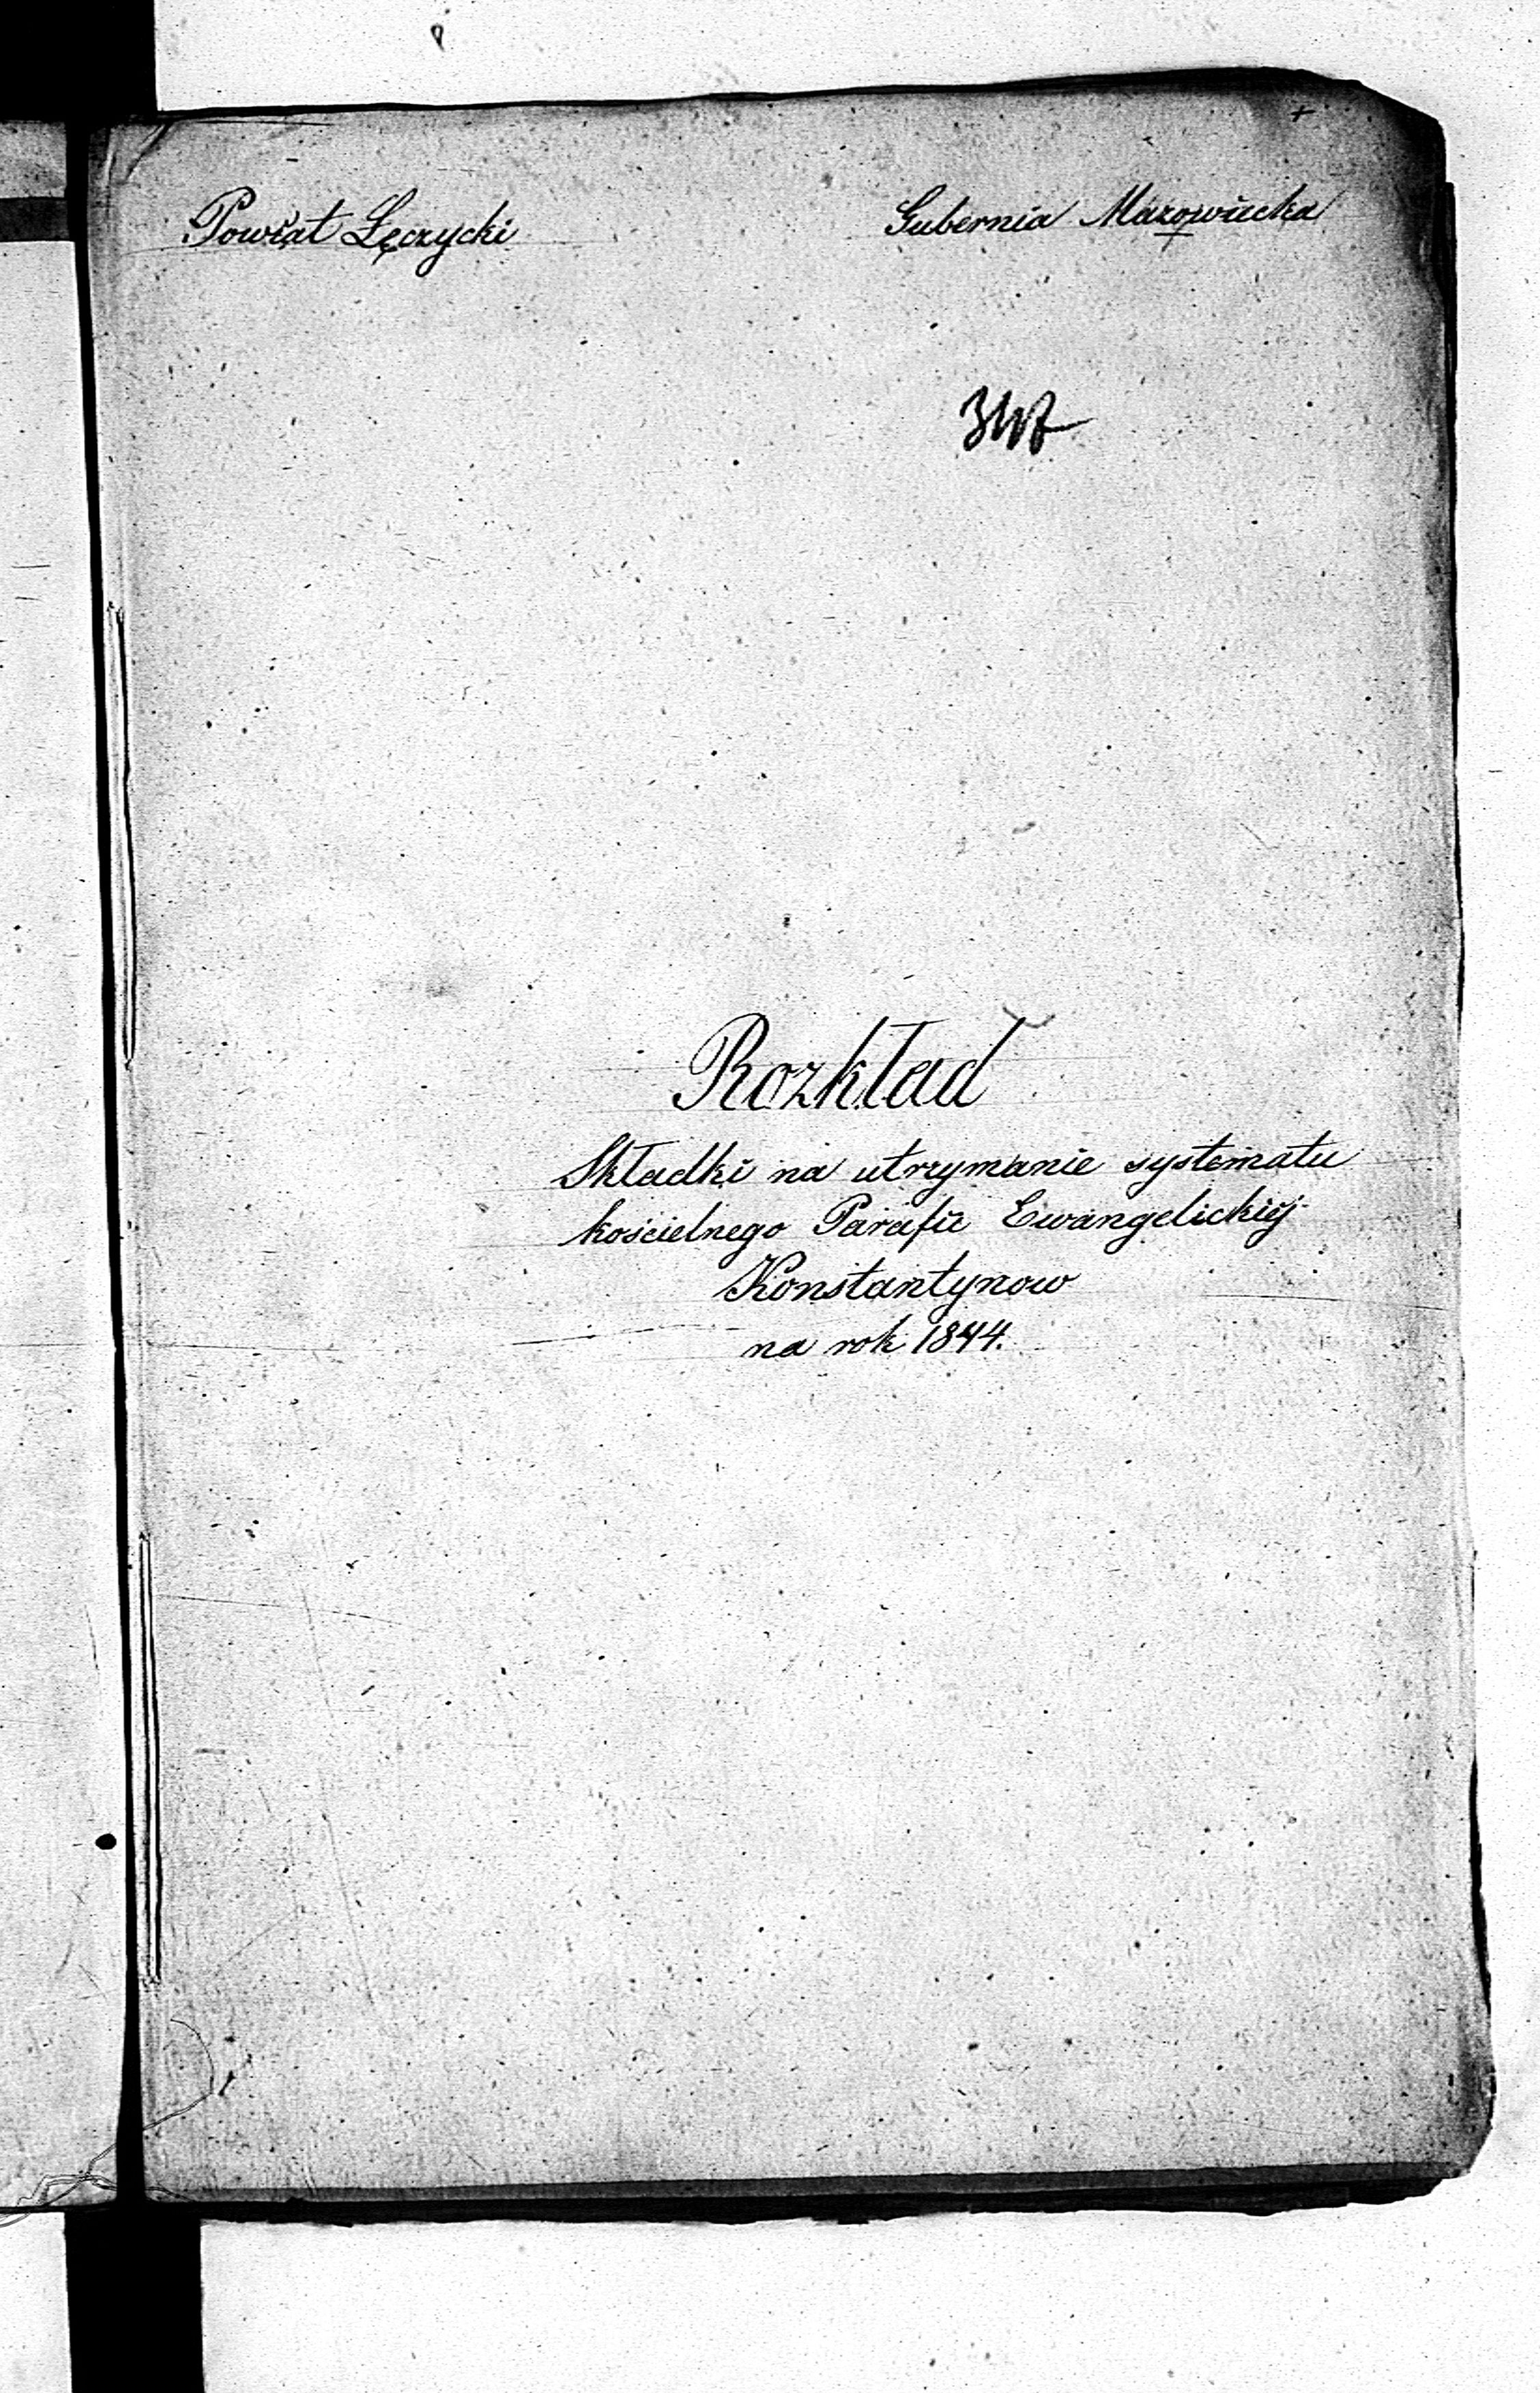 Powiat Łęczycki
Gubernia Mazowiecka
347
Rozkład
Składki na utrzymanie systematu
kościelnego Parafii Ewangelickiéj
Konstantynow
na rok 1844.